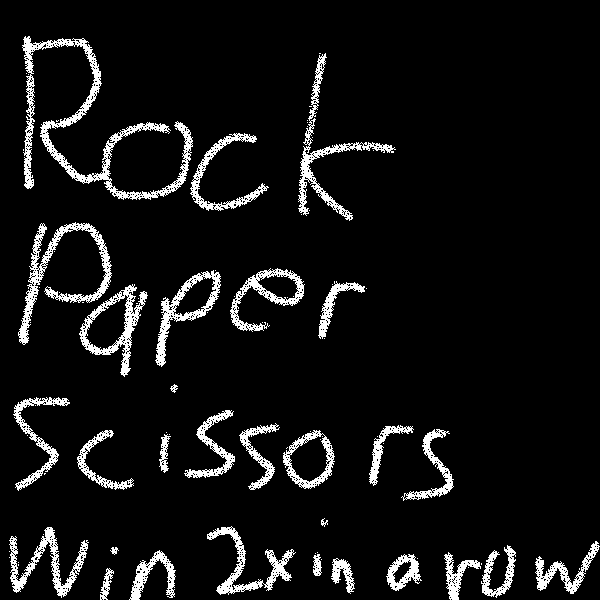 Rock
Paper
Scissors
Win 2x in a row